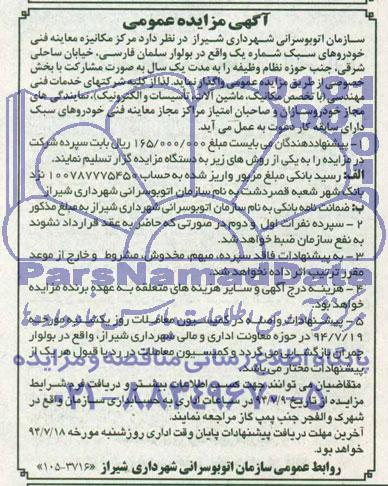 آگهی مزایده عمومی
سازمان اتوبوسرانی شهرداری شیراز در نظر دارد مرکز مکانیزه معاینه فنی
خودروهای سبک شماره یک واقع در بولوار سلمان فارسی، خیابان ساحلی
شرقی، جنب حوزه نظام وظیفه را به مدت یک سال به صورت مشارکت با بخش
خصوصی از طریق مزایده عمومی واگذار نماید. لذا از کلیه شرکتهای خدمات فنی
مهندسی (با تخصص مکانیک، ماشین آلات، تأسیسات و الکترونیک)، نمایندگی های
مجاز خودروسازان و صاحبان امتیاز مراکز مجاز معاینه فنی خودروهای سبک
دارای سابقه کار دعوت به عمل می آید.
۱- پیشنهاددهندگان می بایست مبلغ ۱۶۵/۰۰۰/۰۰۰ ریال بابت سپرده شرکت
در مزایده را به یکی از روش های زیر به دستگاه مزایده گزار تسلیم نمایند.
الف: رسید بانکی مبلغ مزبور واریز شده به حساب ۱۰۰۷۸۷۷۷۵۴۵۰ نزد
بانک شهر شعبه قصردشت به نام سازمان اتوبوسرانی شهرداری شیراز
ب: ضمانت نامه بانکی به نام سازمان اتوبوسرانی شهرداری شیراز به مبلغ مذکور
۲ - سپرده نفرات اول و دوم در صورتی که حاضر به عقد قرارداد نشوند
به نفع سازمان ضبط خواهد شد.
۳ - به پیشنهادات فاقد سپرده، مبهم، مخدوش، مشروط و خارج از موعد
مقرر ترتیب اثر داده نخواهد شد.
۴ - هزینه درج آگهی و سایر هزینه های متعلقه به عهده برنده مزایده
خواهد بود.
۵ - پیشنهادات واصله در کمیسیون معاملات روز یکشنبه مورخه
۹۴/۷/۱۹ در حوزه معاونت اداری و مالی شهرداری شیراز، واقع در بولوار
چمران بازگشایی می گردد و کمیسیون معاملات در رد یا قبول هر یک از
پیشنهادات مختار می باشد.
متقاضیان می توانند جهت کسب اطلاعات بیشتر و دریافت فرم شرایط
مزایده از تاریخ ۹۴/۷/۹ در ساعات اداری به حسابداری سازمان واقع در
شهرک والفجر جنب پمپ گاز مراجعه نمایند.
آخرین مهلت دریافت پیشنهادات پایان وقت اداری روز شنبه مورخه ۹۴/۷/۱۸
خواهد بود.
روابط عمومی سازمان اتوبوسرانی شهرداری شیراز «۳۷۱۶-۱۰۵»
ParsNamadData
پایگاه اطلاع رسانی مناقصه و مزایده
۰۲۱-۸۸۳۴۹۶۷۰-۵